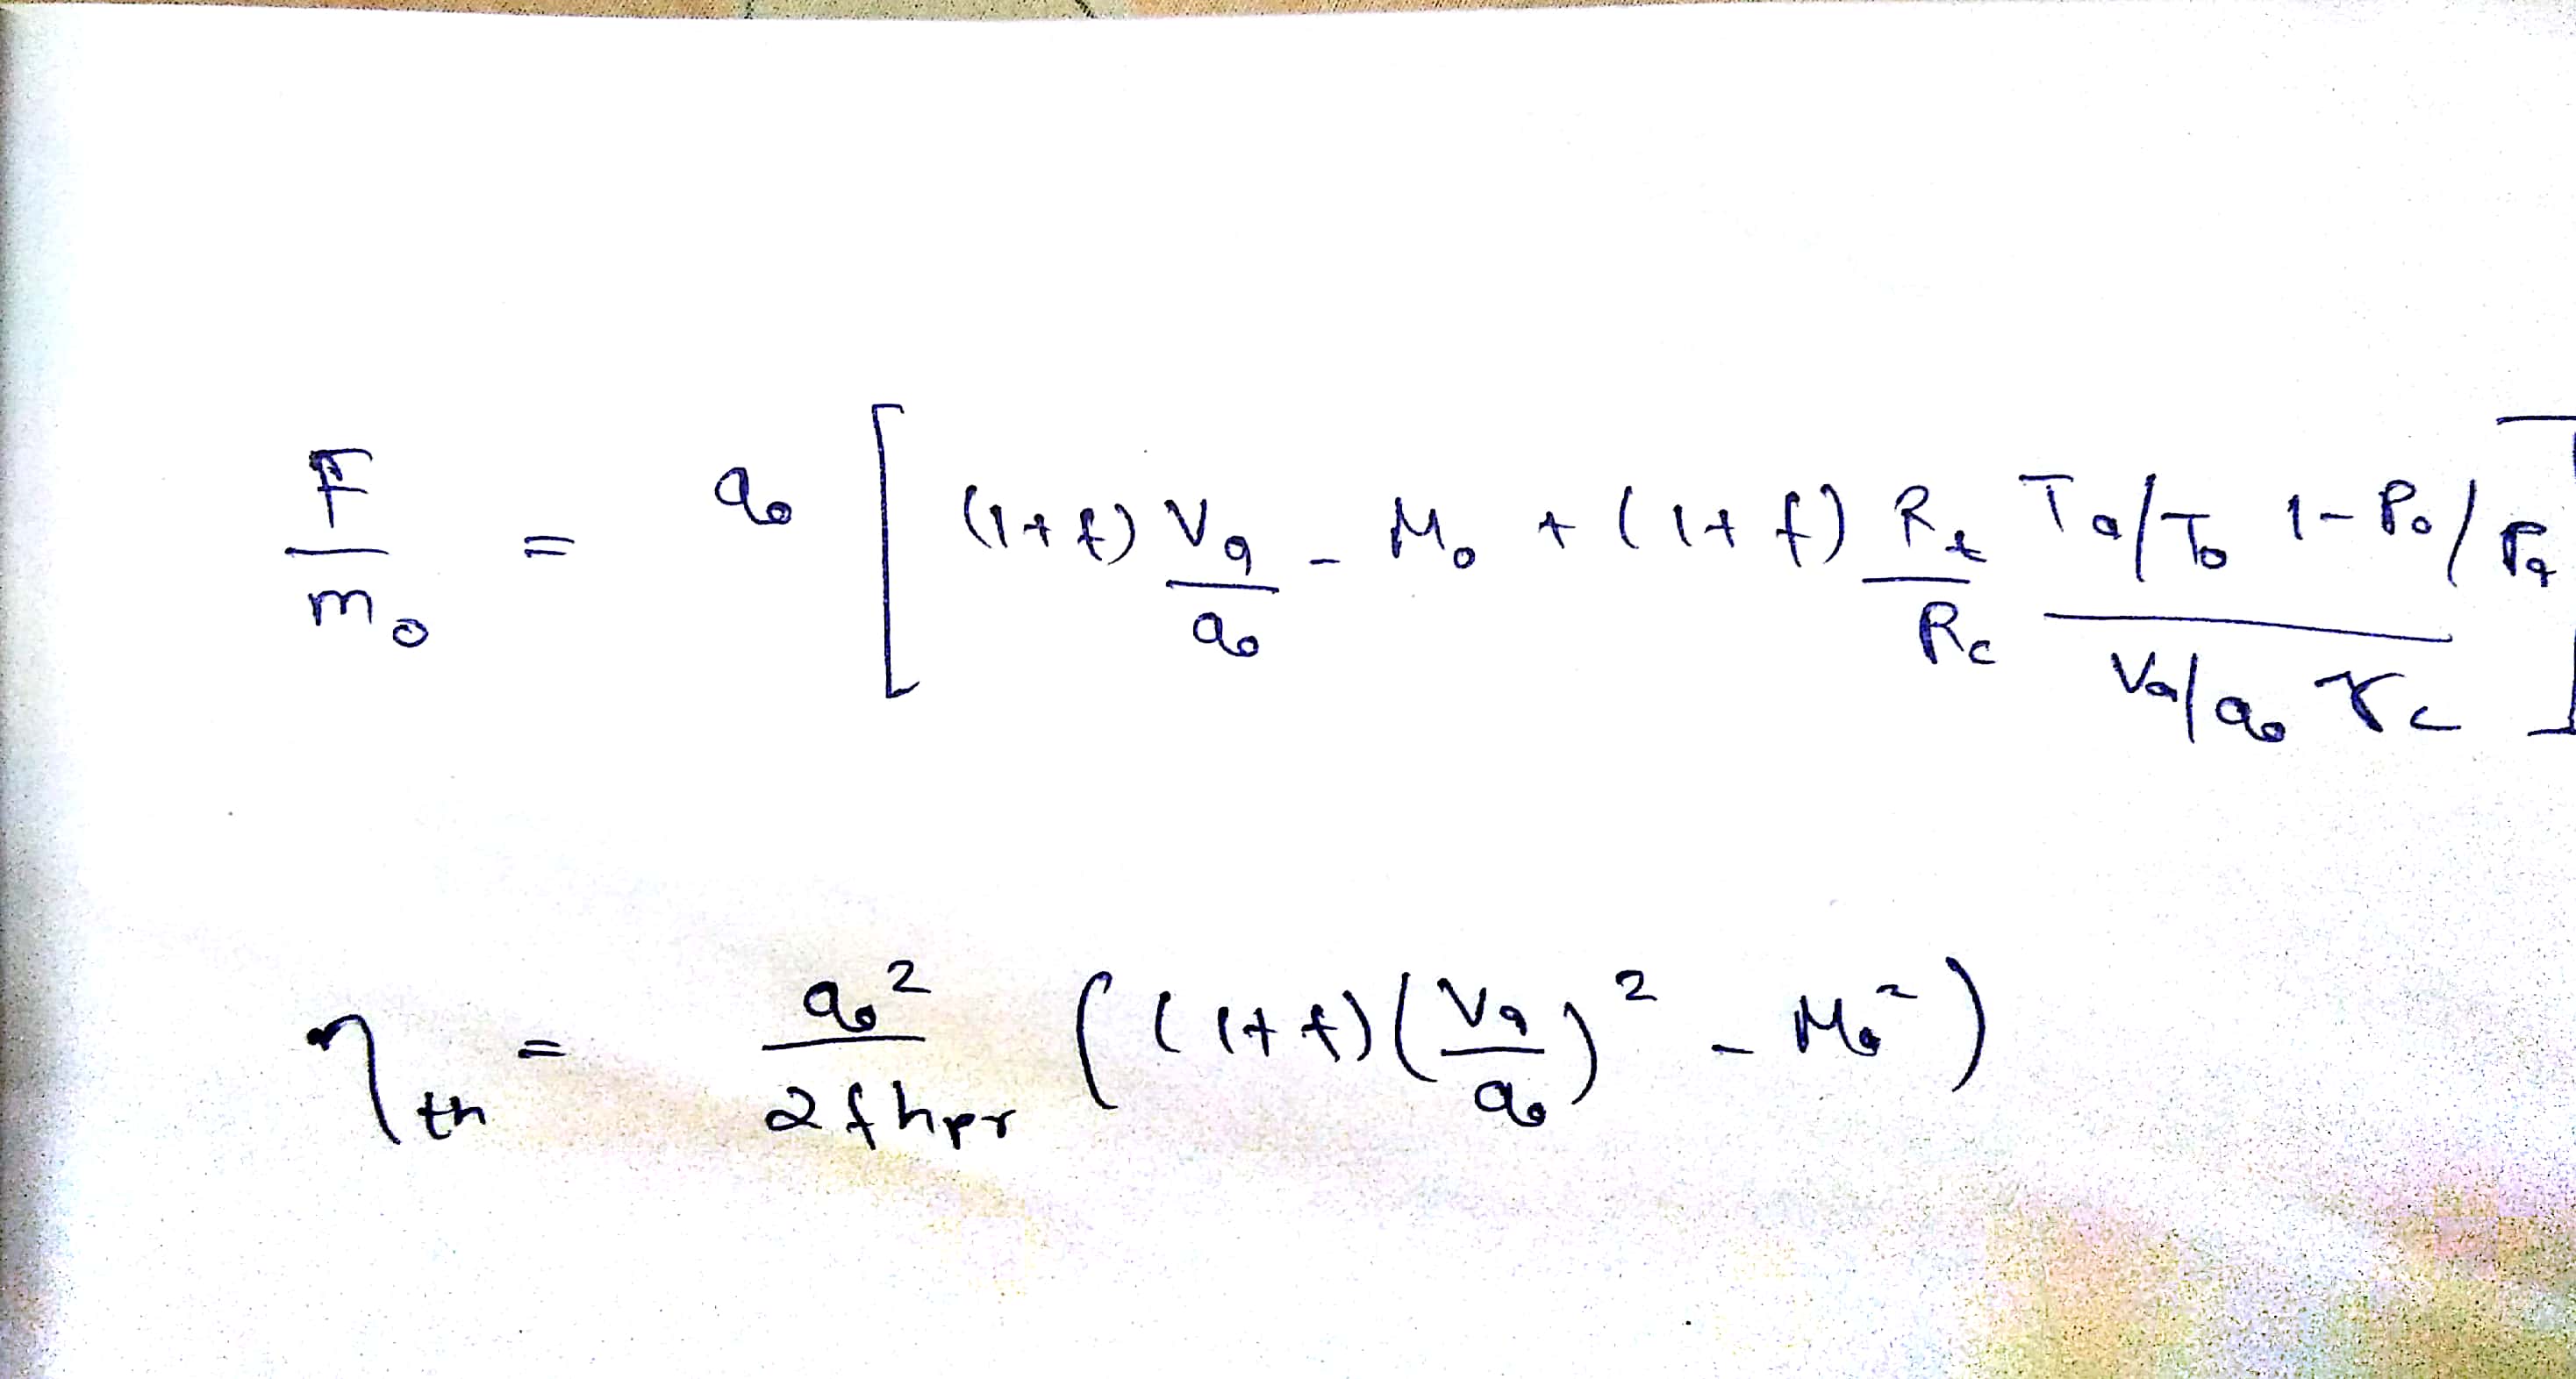 F/m₀ = a₀ [ (1+f) V₉/a₀ - M₀ + (1+f) Rₜ/R_c (T₉/T₀ 1-P₀/P₉)/(V₉/a₀ γ_c) ]
η_th = a₀²/(2fh_pr) ( (1+f)(V₉/a₀)² - M₀² )